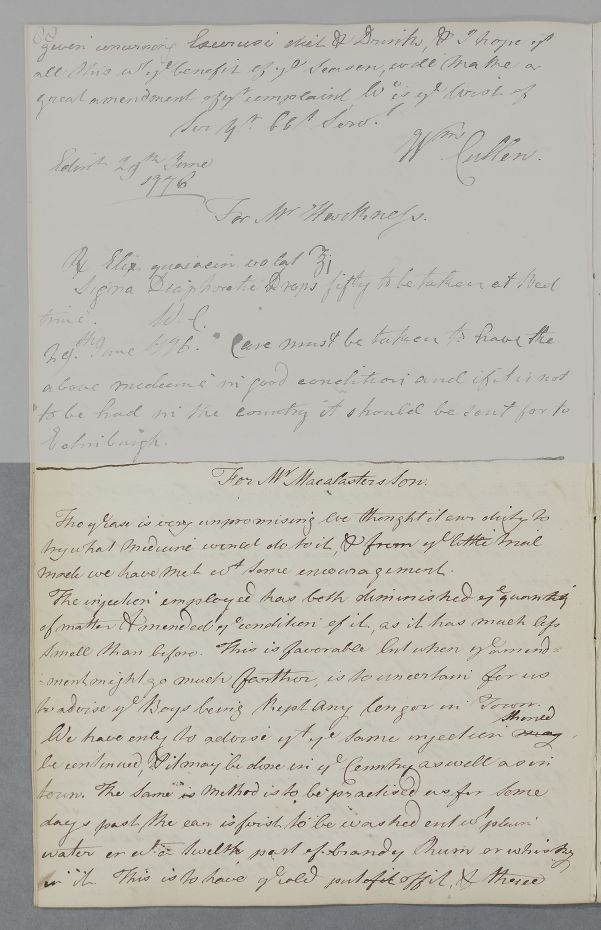 given concerning Exercise diet & Drinks, & I hope yt
all this wt ye benefit of ye Season, will make a
great amendment of yr complaint, wc is ye wist of
Sir Yr. obt Servt.
Wm Cullen.
Edinr 29th June
1776
For Mr Harkness.
℞ Elix. guaiacin volat ℥i
Signa Diaphoretic Drops fifty to be taken at Bed
time. W.C.
29th June 1776. Care must be taken to have the
above medicine in good condition and if it is not
to be had in the country it should be sent for to
Edinburgh.
For Mr Macalasters Son.
Tho ye case is very unpromising we thought it our duty to
try what medicine would do to it, & from ye little trial
made we have met wt some encouragement.
The injection employed has both diminished ye quantity
of matter & mended ye condition of it, as it has much less
smell than before. This is favorable but when ye amend=
=ment might go much farther, is to uncertain for us
to advise ye Boys being kept any longer in Town.
We have only to advise yt ye same injection may should
be continued, & it may be done in ye Country as well as in
town. The same is Method is to be practised as for some
days past, the ear is first to be washed out wt plain
water or wt a twelth part of brandy Rhum or whisky
in it. This is to have ye cold put off it, & these